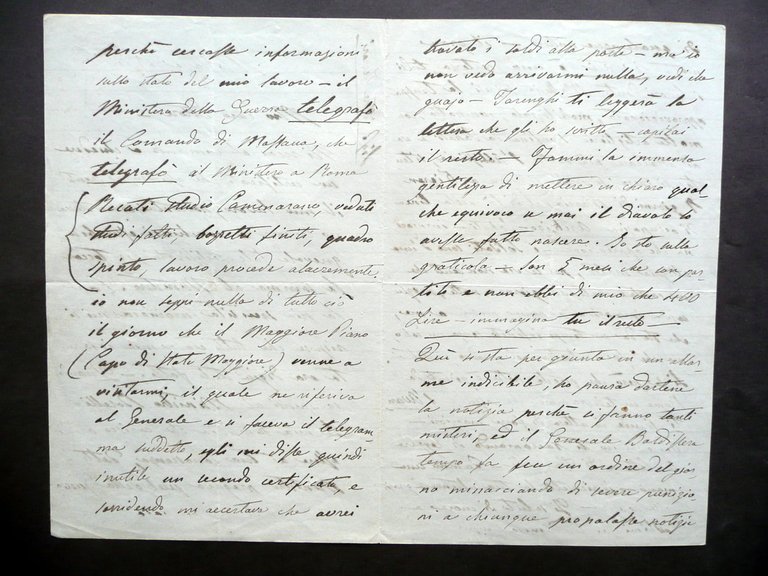 perchè cercasse informazioni
sullo stato del mio lavoro – il
Ministero della Guerra telegrafò
il Comando di Massaua, che
telegrafò al Ministero a Roma
Recati studio Cammarano, veduti
studi fatti, bozzetti finiti, quadro
spinto, lavoro procede alacremente.
io non seppi nulla di tutto ciò
il giorno che il Maggiore Piano
(Capo di Stato Maggiore) venne a
visitarmi, il quale ne riferiva
al Generale e si faceva il telegram-
ma suddetto, egli mi disse quindi
inutile un secondo certificato, e
sorridendo mi accertava che avrei
trovato i soldi alla posta – ma io
non vedo arrivarmi nulla, vedi che
guajo – Tarenghi ti leggerà la
lettera che gli ho scritto – capirai
il resto – Fammi la immensa
gentilezza di mettere in chiaro qual-
che equivoco se mai il diavolo lo
avesse fatto nascere. Io sto sulla
graticola – son 5 mesi che son par
tito e non ebbi di mio che 400
Lire – immagina tu il resto –
Quì si sta per giunta in un allar-
me indicibile, ho paura dartene
la notizia perchè si fanno tanti
misteri, ed il Generale Baldissera
tempo fa fece un ordine del gior
no minacciando di severe punizio
ni a chiunque propalasse notizie